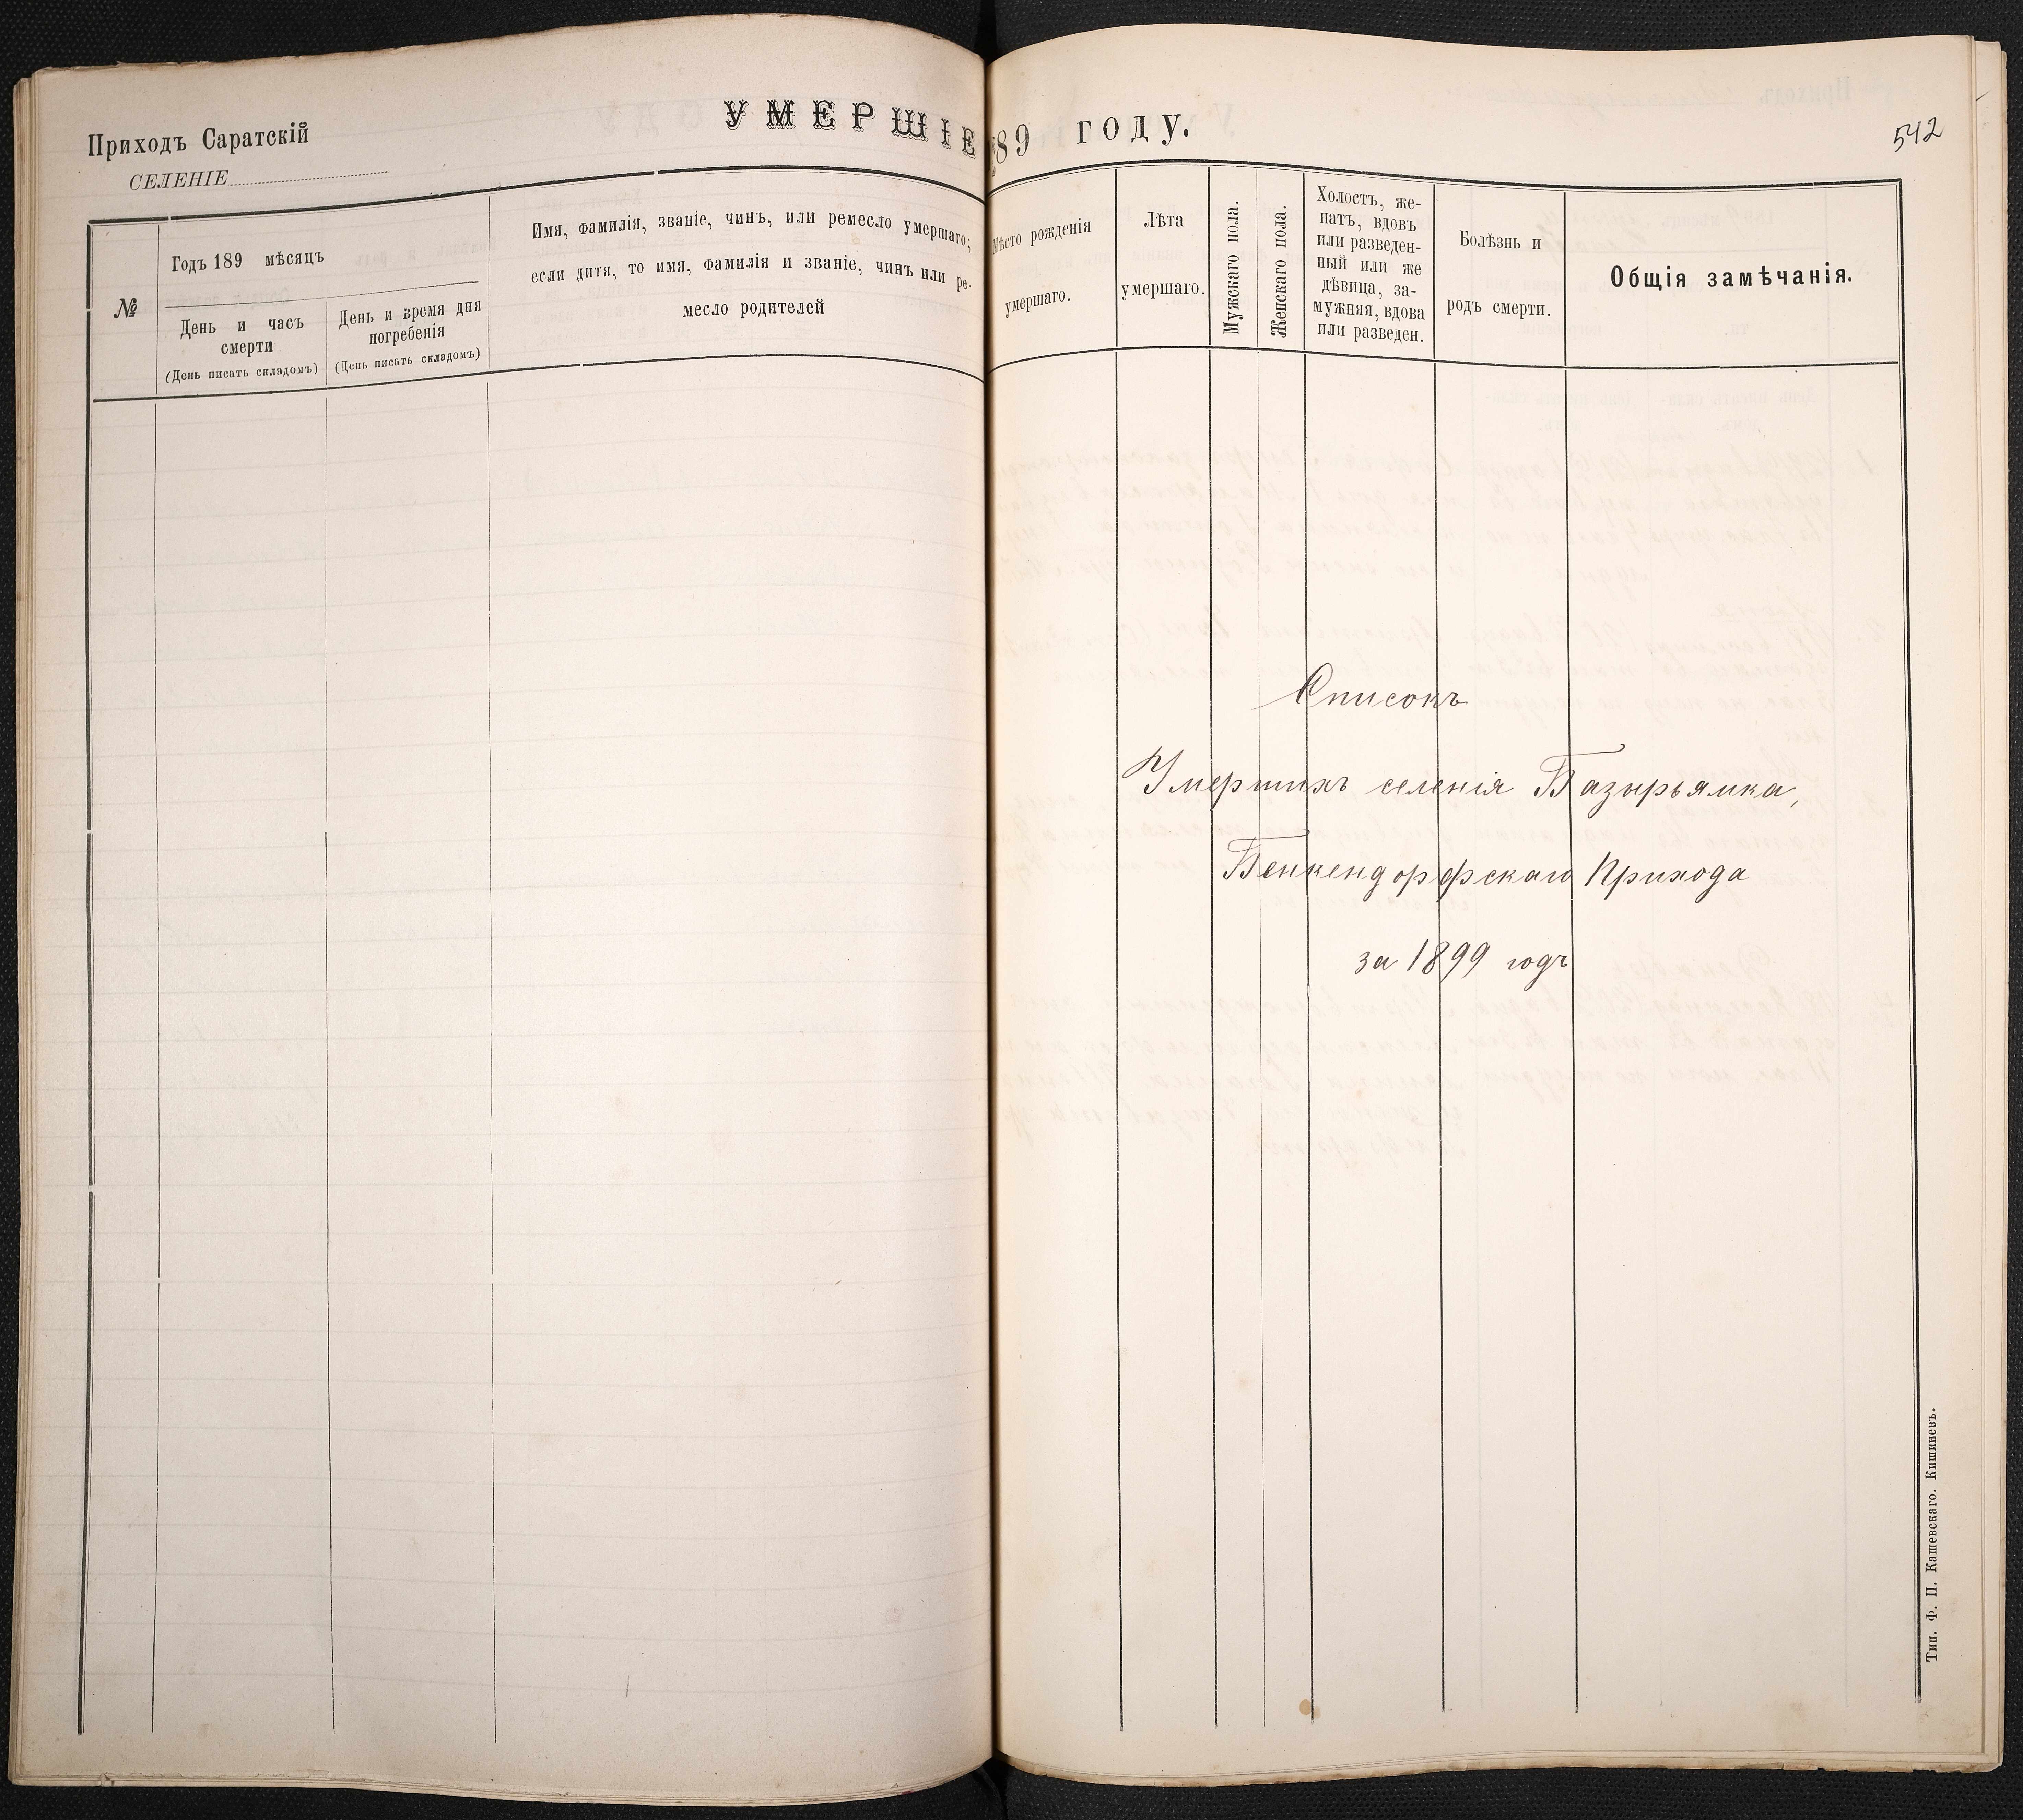 УМЕРШІЕ 89 году.
542
Приходъ Саратскій
СЕЛЕНІЕ
№
Годъ 189 мѣсяцъ
День и часъ
смерти
(День писать складомъ)
День и время дня
погребенія
(День писать складомъ)
Имя, фамилія, званіе, чинъ, или ремесло умершаго;
если дитя, то имя, фамилія и званіе, чинъ или ре-
месло родителей
Мѣсто рожденія
умершаго.
Лѣта
умершаго.
Мужскаго пола.
Женскаго пола.
Холостъ, же-
натъ, вдовъ
или разведен-
ный или же
дѣвица, за-
мужняя, вдова
или разведен.
Болѣзнь и
родъ смерти.
Общія замѣчанія.
Списокъ
Умершихъ селенія Базырьямка,
Бенкендорфскаго Прихода
за 1899 годъ
Тип. Ф. П. Кашевскаго. Кишиневъ.